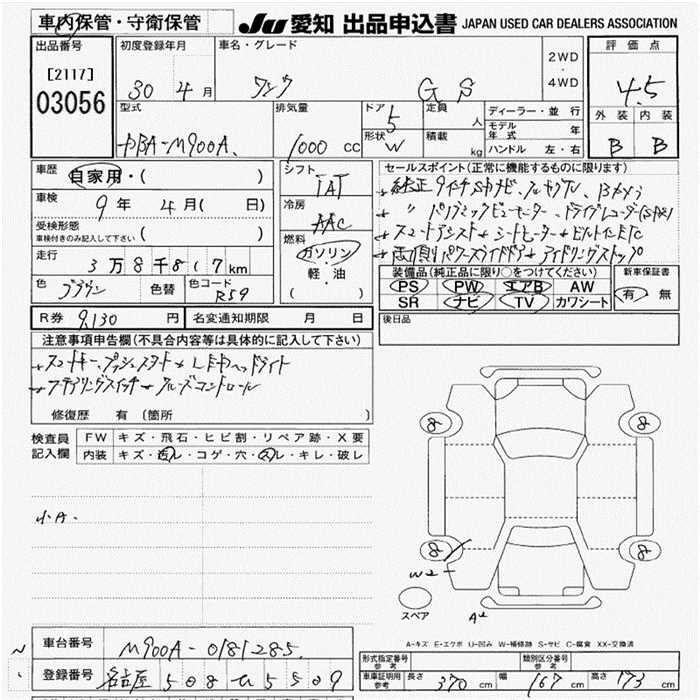 車内保管・守衛保管
JU 愛知 出品申込書 JAPAN USED CAR DEALERS ASSOCIATION
出品番号 初度登録年月 車名・グレード 評価点
[2117]
03056
30 4 月 タンク G S 2WD・4WD
4.5
型式 排気量 ドア 5 定員 人 ディーラー・並行
外装 内装
モデル年式 年
DBA-M900A 1000 cc 形状 W 積載 kg ハンドル 左・右
B B
車歴 自家用・( )
シフト IAT
セールスポイント(正常に機能するものに限ります)
車検 9 年 4 月 ( 日)
冷房 AAC
純正9インチSDナビ、フルセグTV、Bカメラ
〃 パノラミックビューモニター、ドライブレコーダー
受検形態
車検付きのみ記入して下さい ( )
スマートアシスト シートヒーター ビルトインETC
燃料 ガソリン・軽・油 ( )
両側パワースライドドア アイドリングストップ
走行 3 万 8 千 8 1 7 km
装備品(純正品に限り○をつけてください) 新車保証書
PS PW エアB AW
SR ナビ TV カワシート
有・無
色 ブラウン 色替 色コード R59
R券 9,130 円 名変通知期限 月 日
後日品
注意事項申告欄(不具合内容等は具体的に記入して下さい)
スマートキー、プッシュスタート LEDヘッドライト
ステアリングスイッチ クルーズコントロール
修復歴 有 (箇所 )
検査員記入欄 FW キズ・飛石・ヒビ割・リペア跡・X要
内装 キズ・汚レ・コゲ・穴・スレ・キレ・破レ
小A.
8 8
8 8
W2
スペア
A2
A-キズ E-エクボ U-凹み W-補修跡 S-サビ C-腐食 XX-交換済
車台番号 M900A-0181285
登録番号 名古屋 508 5509
形式指定番号 参考 類別区分番号 参考
車庫証明用 参考 長さ 370 cm 幅 167 cm 高さ 173 cm